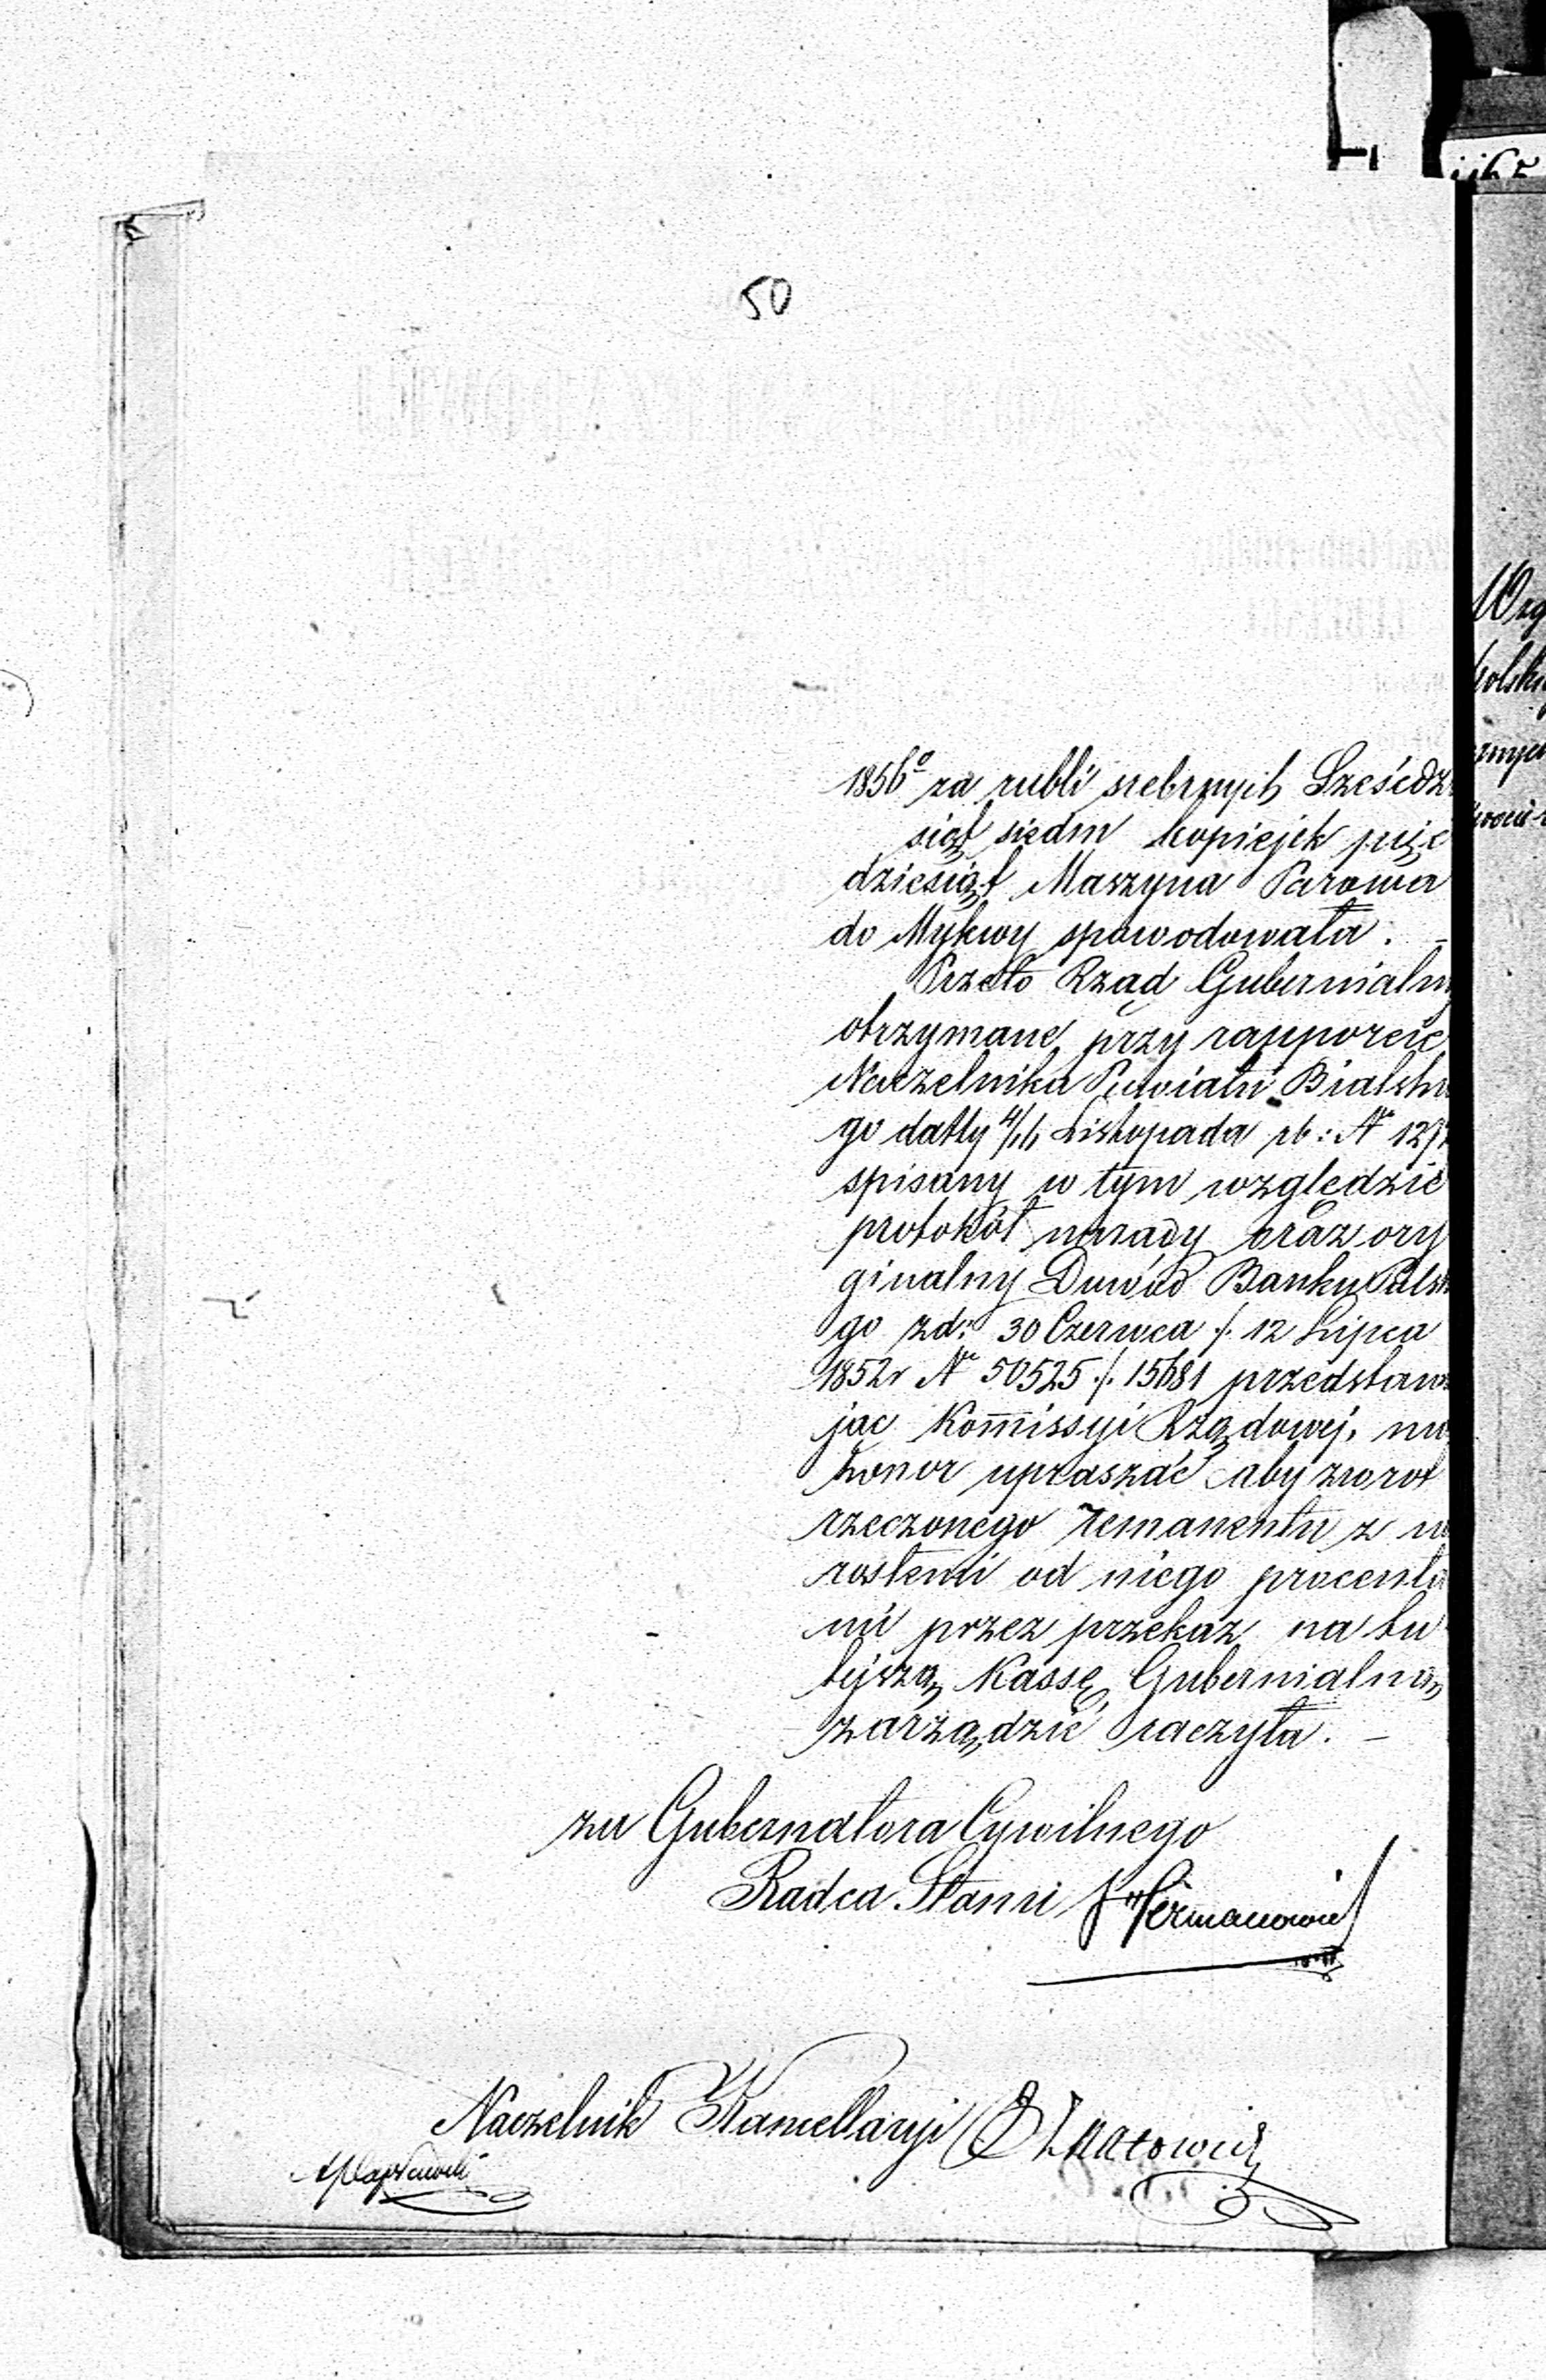 50
1856º za rubli srebrnych Sześćdz
siąt siedm kopiejek pięć
dziesiąt Maszyna Parowa
do Mykwy spowodowała. –
Przeto Rząd Gubernialny
otrzymane przy rapporcie
Naczelnika Powiatu Bialsk
go datty 4/16 Listopada rb: Nr 127
spisany w tym względzie
protokół narady oraz ory
ginalny Dowód Banku Polsk
go zd: 30 Czerwca /. 12 Lipca
1852r Nr 50525 /. 15681 przedstaw
jąc Kommissyi Rządowej, ma
honor upraszać aby zwrot
rzeczonego remanentu z na
rosłemi od niego procenta
mi przez przekaz na tu
tejszą Kassę Gubernialną
zarządzić raczyła. –
za Gubernatora Cywilnego
Radca Stanu J Hermanowicz
Naczelnik Kancellaryi